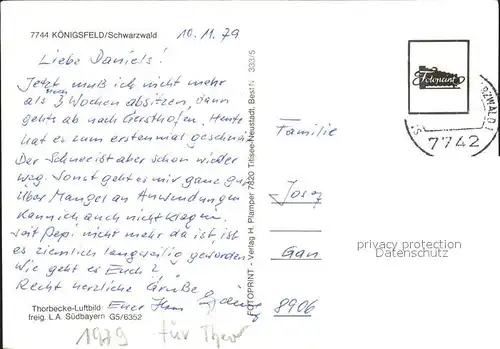 7744 KÖNIGSFELD/Schwarzwald
10.11.79
Liebe Daniels!
Jetzt muß ich nicht mehr
als 3 Wochen absitzen, dann
noch
gehts ab nach Gersthofen. Heute
hat es zum erstenmal geschneit
Der Schnee ist aber schon wieder
weg. Sonst geht es mir ganz gut
Über Mangel an Anwendungen
kann ich auch nicht klagen.
seit Pepi nicht mehr da ist, ist
es ziemlich langweilig geworden.
Wie geht es Euch?
Recht herzliche Grüße
Euer Hans
Thorbecke-Luftbild
freig. L.A. Südbayern G5/6352
FOTOPRINT - Verlag H. Plamper 7820 Titisee-Neustadt, Best.N 333/5
Fotoprint
7742
Familie
Josef
8906
privacy protection
Datenschutz
1979 für Theo